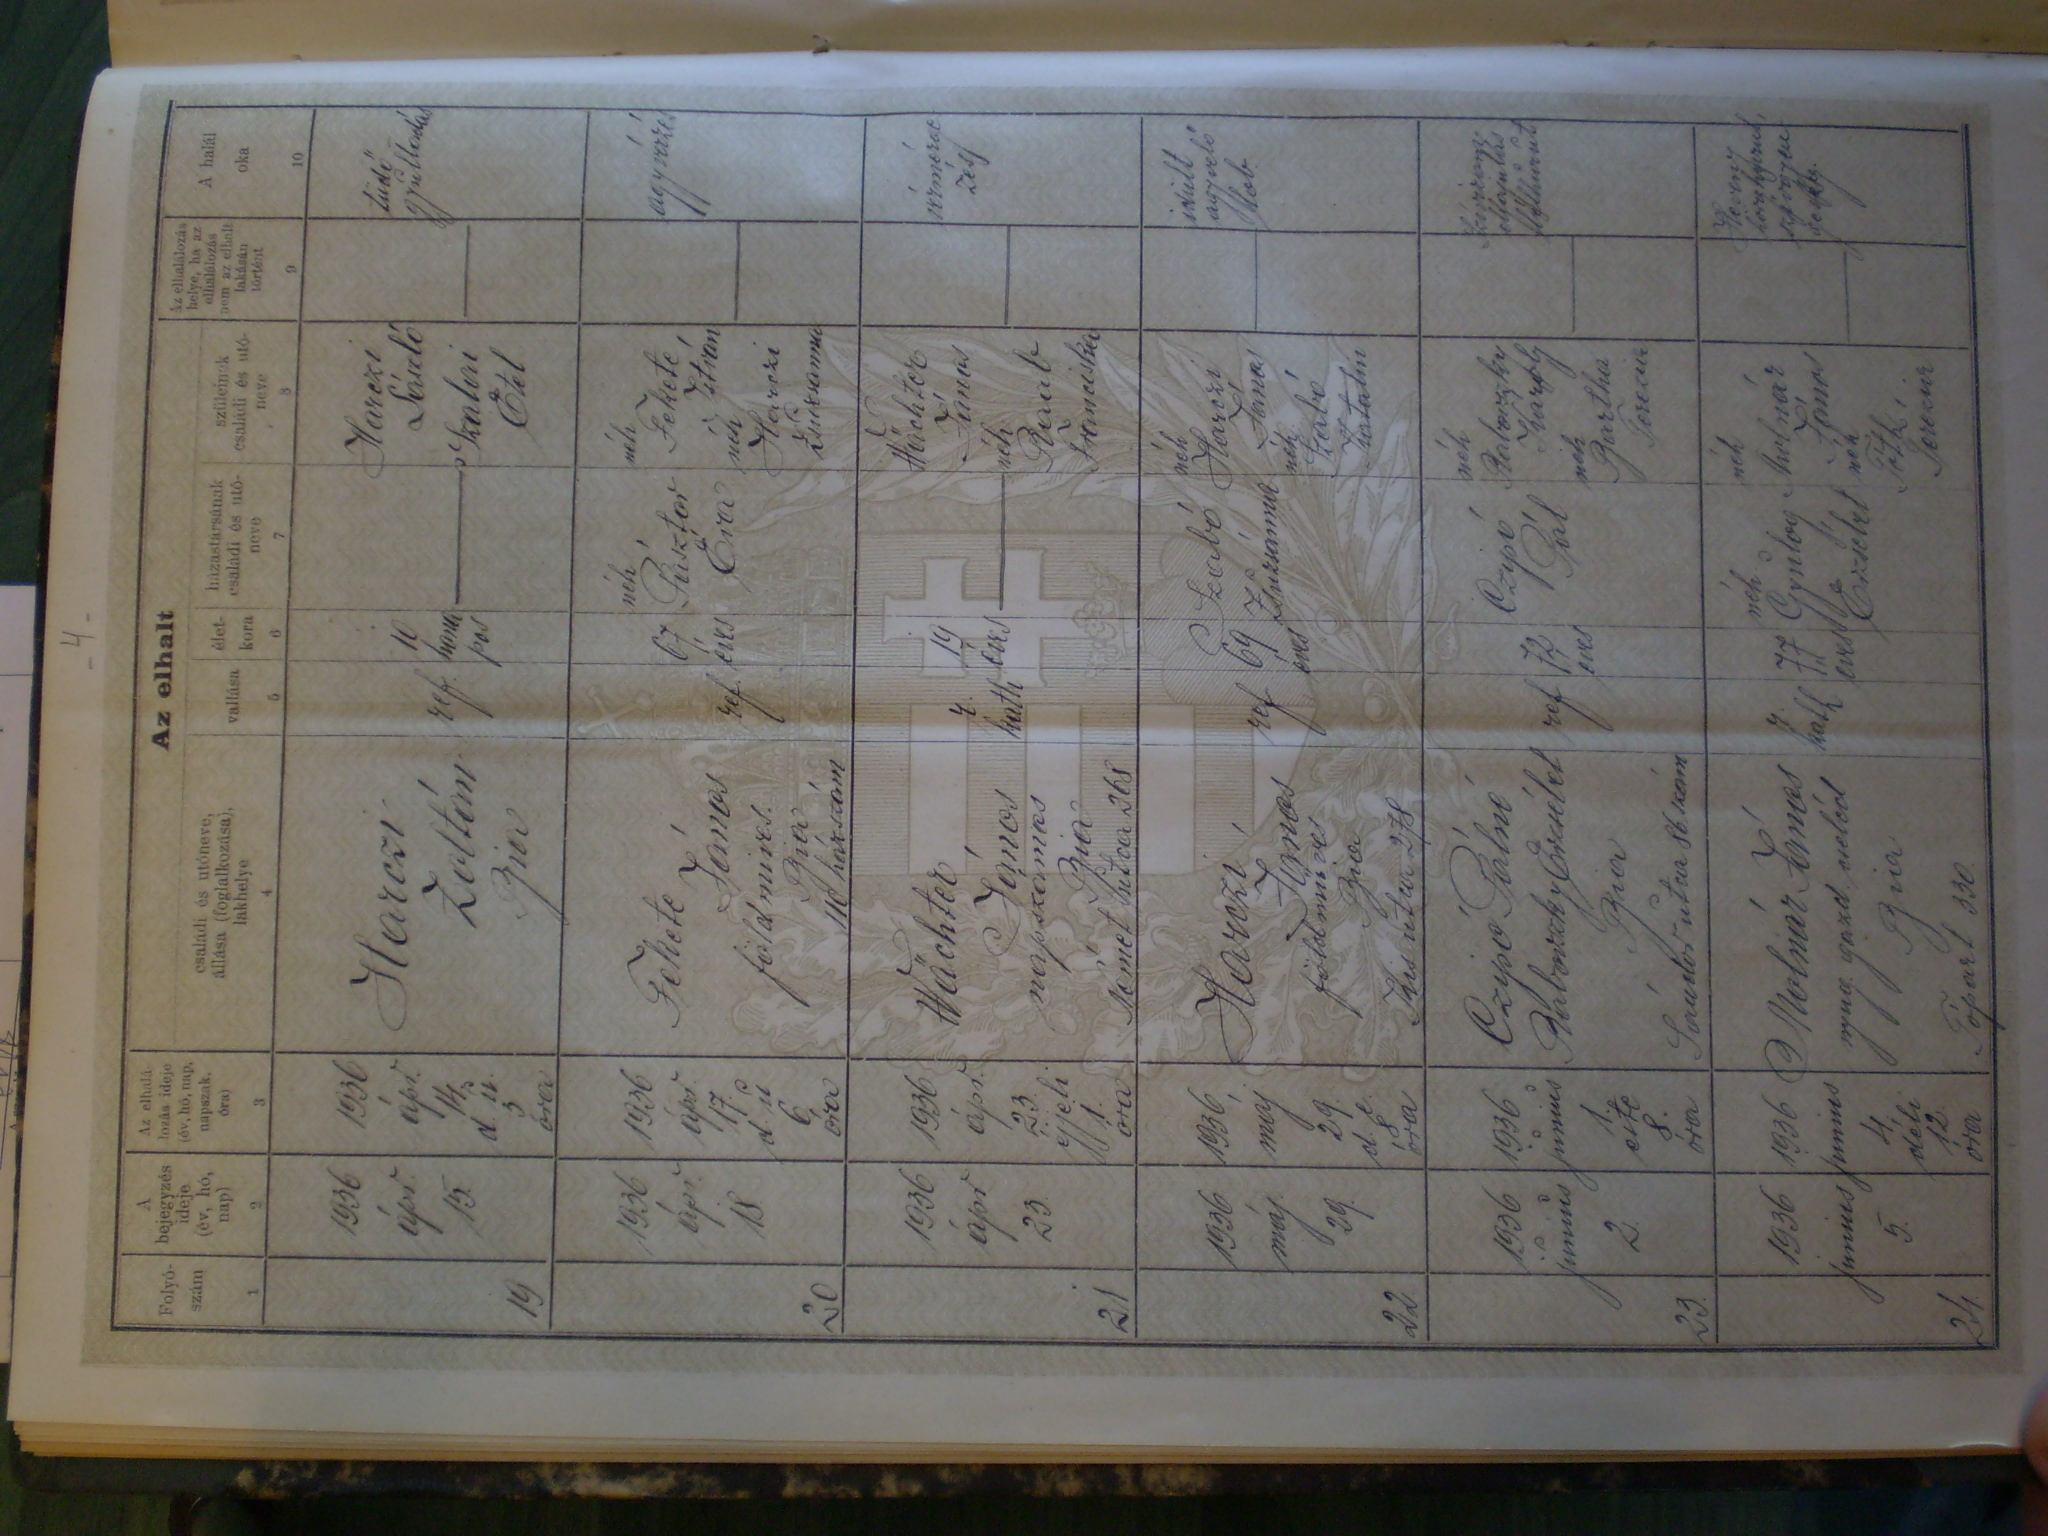 - 4 -
Az elhalt
Folyó-
szám
1
A
bejegyzés
ideje
(év, hó,
nap)
2
Az elhalá-
lozás ideje
(év, hó, nap,
napszak,
óra)
3
családi és utóneve,
állása (foglalkozása),
lakhelye
4
vallása
5
élet-
kora
6
házastársának
családi és utó-
neve
7
szüleinek
családi és utó-
neve
8
Az elhalálozás
helye, ha az
elhalálozás
nem az elhalt
lakásán
történt
9
A halál
oka
10
19
1936
ápr.
15.
1936
ápr.
14.
d. u.
3
óra
Harczi
Zoltán
Bia
ref.
10
hóna
pos
Harczi
László
Etel
tüdő
gyulladás
20
1936
ápr.
18
1936
ápr.
17.
d. u
6.
óra
Fekete
János
földmives.
Bia
110 házszám
ref.
67
éves
néh
Pásztor
Éva
néh
Fekete
István
néh
Harczi
Zsuzsanna
agyvérzés
21
1936
ápr
23.
1936
ápr.
23.
éjjeli
1.
óra
Wächter
János
napszámos
Bia
Német utca 268
r.
kath
19
éves
Wächter
János
néh
Raub
Franciska
22.
1936
máj.
29.
1936
máj
29.
d. e.
8.
óra
Harczi
János
földmives
Bia
Kis utca 278
ref
69
éves
Szabó
Zsuzsánna
néh
Harczi
János
néh
Szabó
Katalin
23.
1936
junius
2.
1936
junius
1.
este
8.
óra
Czipó Pálné
Erzsébet
Bia
utca 86 szám
ref
72
éves
Czipó
Pál
néh
Károly
néh
Bartha
Terezia
24.
1936
junius
5.
1936
junius
4.
déli
12.
óra
Molnár János
Bia
Tópart 330.
r.
kath
77
éves
néh
Erzsébet
néh
Molnár
János
néh
Tóth
Terezia